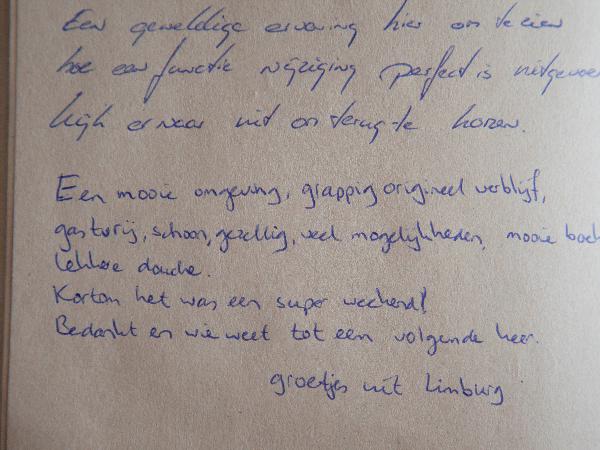 Een geweldige ervaring hier om te zien
hoe een functie wijziging perfect is uitgevoe
kijk er naar uit om terug te komen.
Een mooie omgeving, grappig origineel verblijf,
gastvrij, schoon, gezellig, veel mogelijkheden, mooie boek
lekkere douche.
Kortom het was een super weekend!
Bedankt en wie weet tot een volgende keer.
groetjes uit Limburg